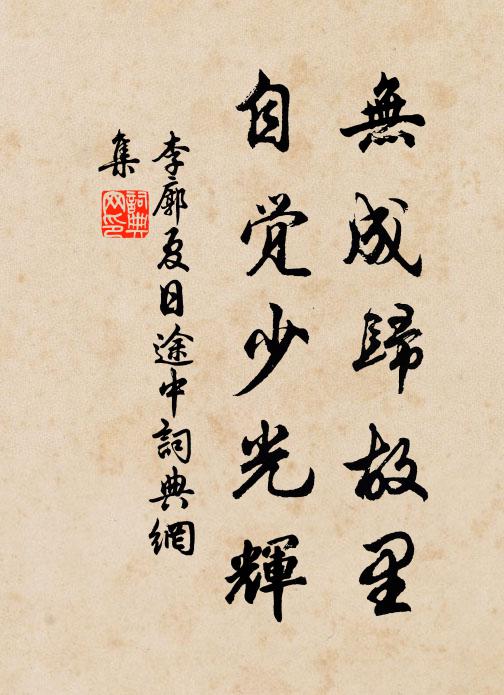 無成歸故里
自觉少光輝
李廓夏日途中詞典網
集
詞典
网印